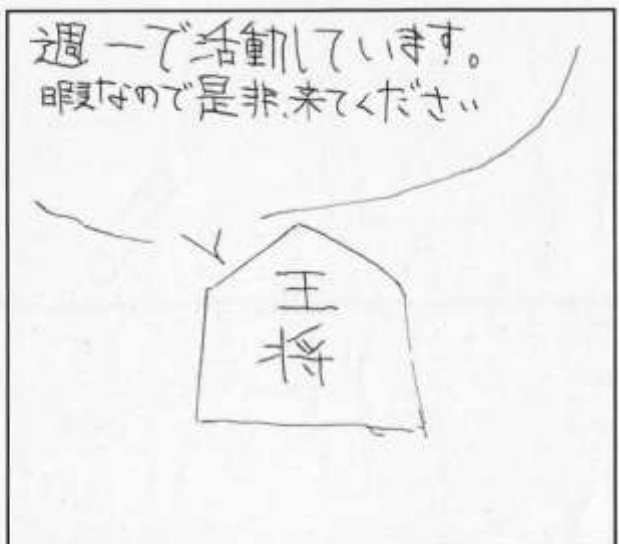 週一で活動しています。
暇なので是非、来てください
王
将